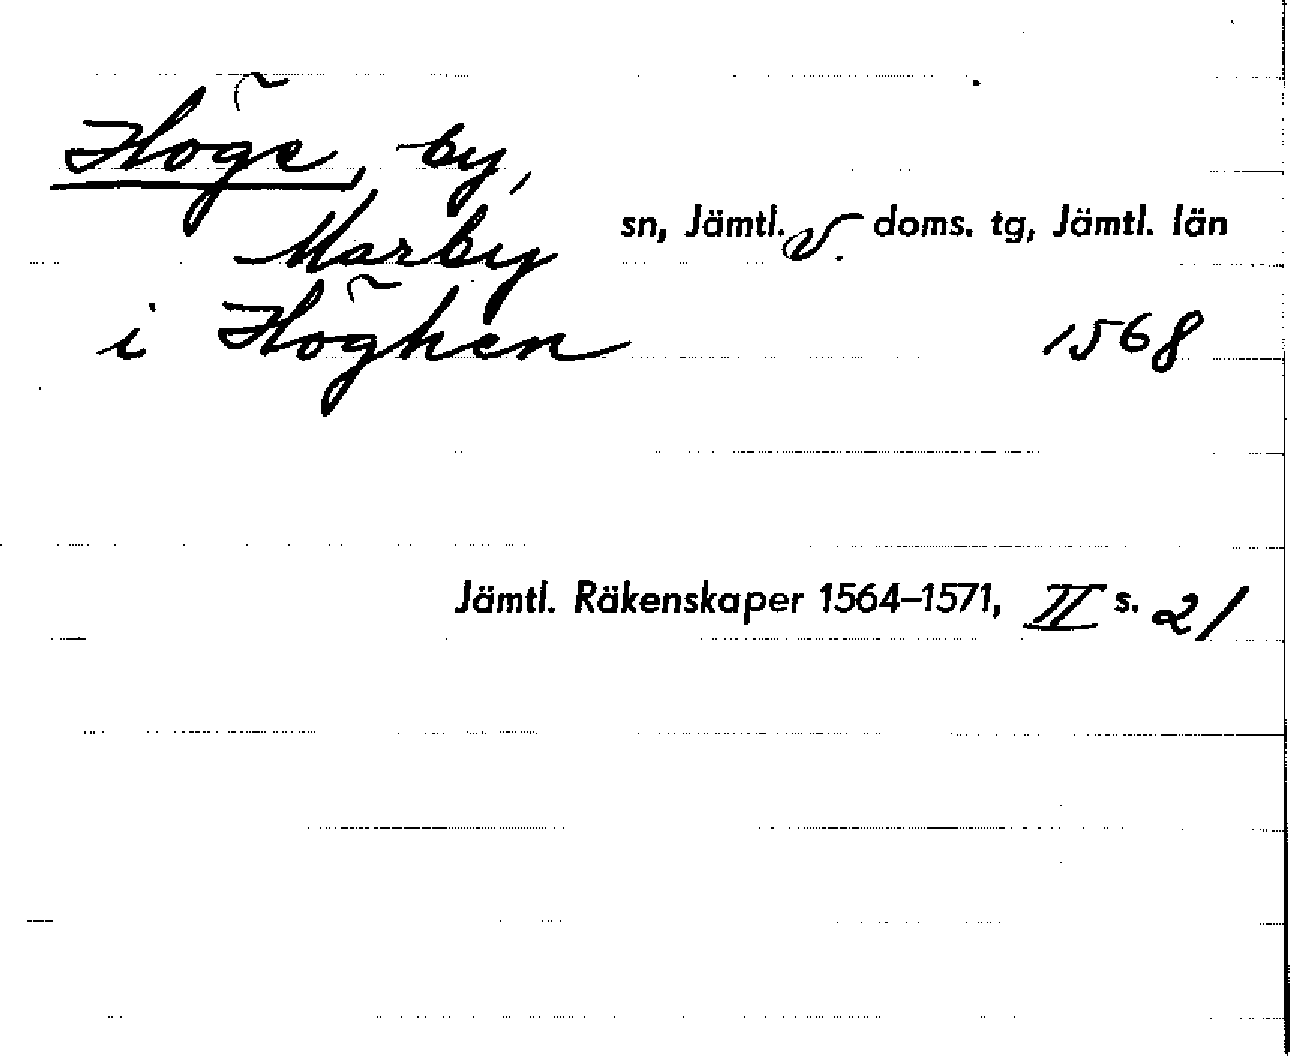 Höge, by,
Marby sn, Jämtl. v. doms. tg, Jämtl. län
i Höghen 1568
Jämtl. Räkenskaper 1564–1571, II s. 21